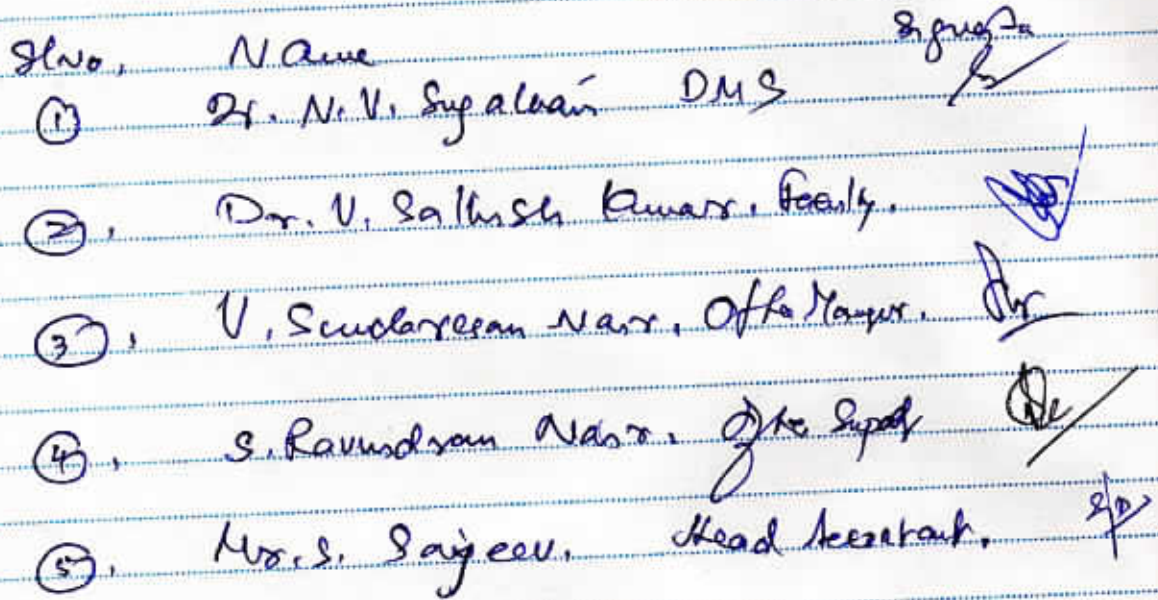 Sl No. Name Signature
① Dr. N. V. Sugathan DMS
②. Dr. V. Sathish Kumar. Faculty.
③. V. Sundaresan Nair. Office Manager.
④. S. Ravindran Nair. Office Supdt
⑤. Mr. S. Sajeev. Head Accountant.